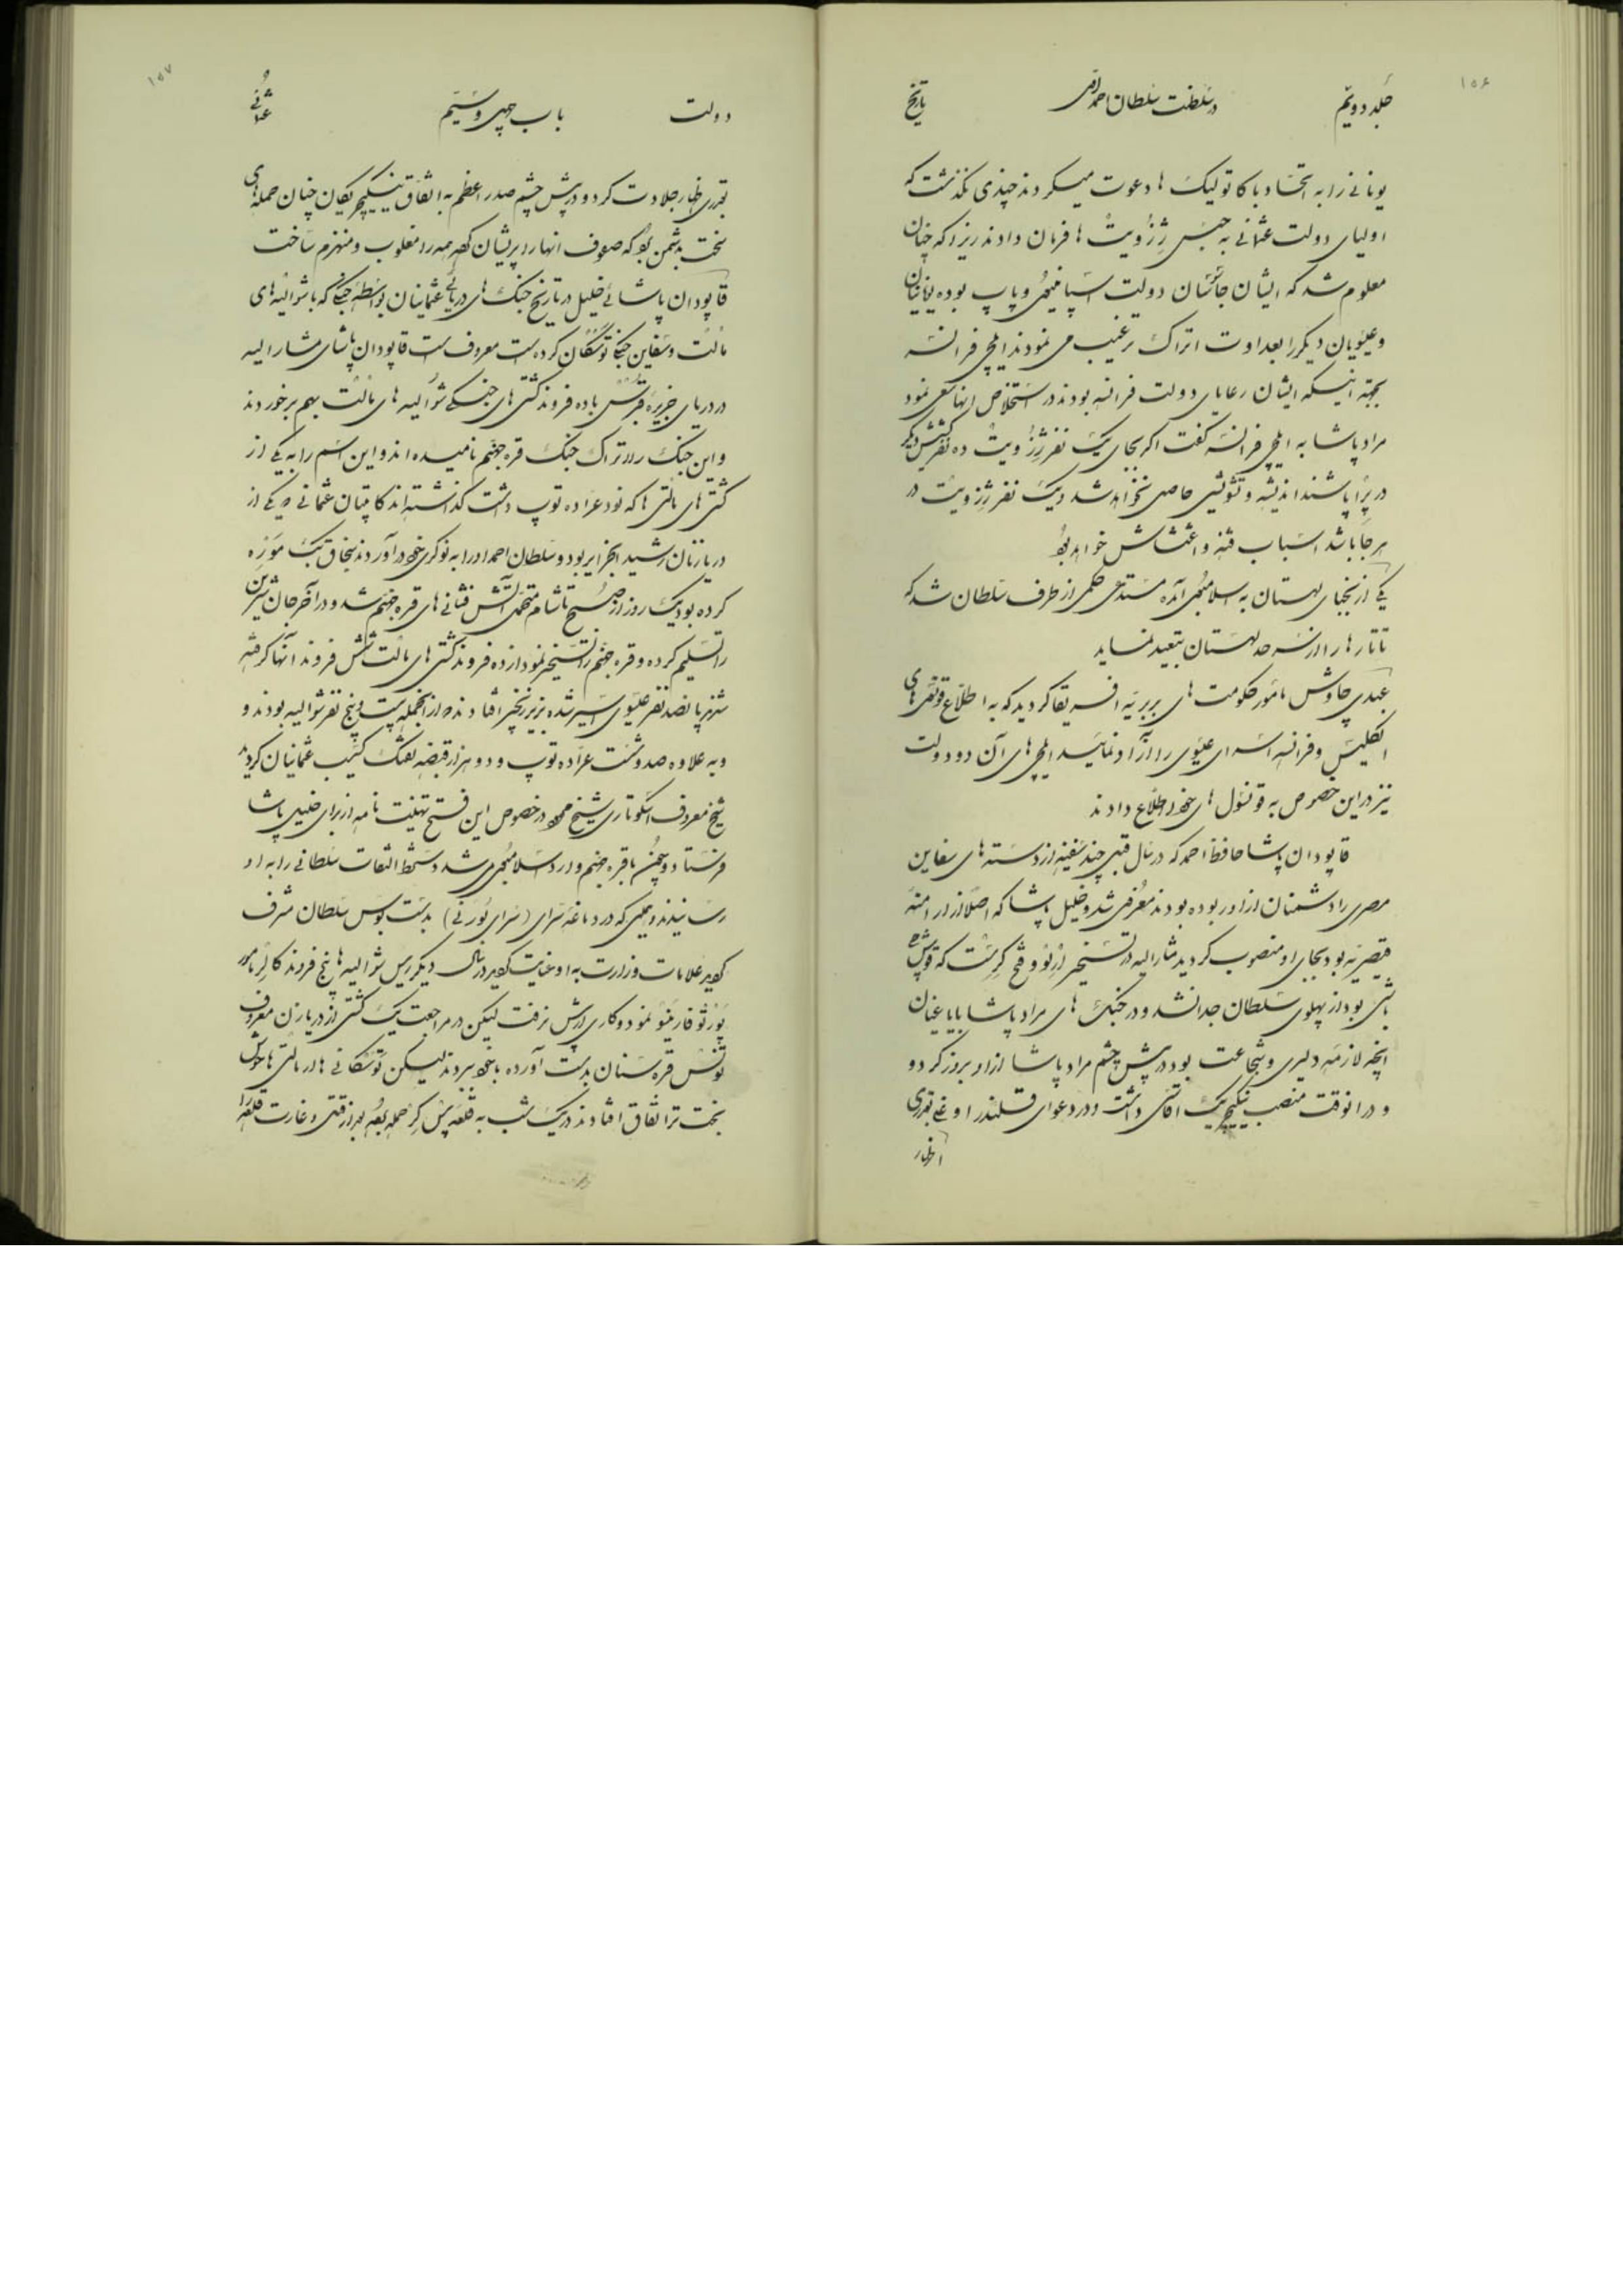 ۱۵۶
جلد دویّم در سلطنت سلطان احمد اوّل تاریخ
یونانی را به اتحاد با کاتولیک ها دعوت میکردند چندی نگذشت که
اولیای دولت عثمانی به حبس ژزویت ها فرمان دادند زیرا که چنان
معلوم شد که ایشان جاسوسان دولت اسپانیول و پاپ بوده یونانیان
و عیسویان دیگر را بعداوت اتراک ترغیب می نمودند ایلچی فرانسه
بجهة اینکه ایشان رعایای دولت فرانسه بودند در استخلاص انها سعی نمود
مراد پاشا به ایلچی فرانسه گفت اگر بجای یک نفر ژزویت ده نفر کشیش دیگر
در پرا باشند اندیشه و تشویشی حاصل نخواهد شد و یک نفر ژزویت در
هر جا باشد اسباب فتنه و اغتشاش خواهد بود
یکی از نجبای لهستان به اسلامبول آمده مستدعی حکمی از طرف سلطان شد که
تاتار ها را از سرحد لهستان بتبعید نماید
عبدی چاوش مأمور حکومت های بربریه افریقا گردید که به اطلاع قونسل های
انگلیس و فرانسه اسرای عیسوی را آزاد نمایند ایلچی های آن دو دولت
نیز در این خصوص به قونسول های خود اطلاع دادند
قاپودان پاشا حافظ احمد که در سال قبل چند سفینه از دسته های سفاین
مصری را دشمنان از او ربوده بودند معزول شد و خلیل پاشا که اصلاً از ارامنه
قیصریه بود بجای او منصوب گردید مشارالیه در تسخیر و فتح که قوش
باشی بود از پهلوی سلطان جدا نشد و در جنگ های مراد پاشا با یاغیان
آنچه لازمه دلیری و شجاعت بود در پیش چشم مراد پاشا از او بروز کرد و
و در انوقت منصب ینگیچریک اقاسی داشت و در دعوای قلندر اوغلی بقدری
اظهار
۱۵۷
دولت باب چهل و سیّم عثمانی
بقدری اظهار جلادت کرد و در پیش چشم صدر اعظم به اتفاق ینگیچریکان چنان حمله های
سخت بدشمن بود که صفوف انها را پریشان کرده همه را مغلوب و منهزم ساخت
قاپودان پاشای خلیل در تاریخ جنگ های دریائی عثمانیان بواسطه جنگی که با شوالیه های
مالت و سفاین جنگی توسکان کرده است معروف است قاپودان پاشای مشارالیه
در دریای جزیره قبرس با ده فروند کشتی های جنگی شوالیه های مالت بهم برخوردند
و این جنگ را اتراک جنگ قره جهنم نامیده اند و این اسم را به یکی از
کشتی های مالتی ها که نود عرّاده توپ داشت گذاشته اند کاپیتان عثمانی که یکی از
دریازنان رشید الجزایر بود و سلطان احمد او را به نوکری خود درآورده سنجاق بیک موره
کرده بود یک روز از صبح تا شام متحمل آتش فشانی های قره جهنم شد و در آخر جان شیرین
را تسلیم کرده و قره جهنم را تسخیر نمود از ده فروند کشتی های مالت شش فروند آنها گرفته
شد پانصد نفر عیسوی اسیر شده بزیر زنجیر افتادند از انجمله بیست و پنج نفر شوالیه بودند و
و به علاوه صد و شصت عرّاده توپ و دو هزار قبضه تفنگ کسب عثمانیان گردید
شیخ معروف اسکوتاری شیخ محمود در خصوص این فتح تهنیت نامه از برای خلیل پاشا
فرستاد و چون با قره جهنم وارد اسلامبول می شد دستخط التفات سلطانی را به او
رسانیدند و محلی که در دماغه سرای (سرای بورنی) بدست بوس سلطان مشرف
گردید علامات وزارت به او عنایت گردید در سال دیگر رئیس شوالیه ها پنج فروند کالر مأمور
نمود و کاری از پیش نرفت لیکن در مراجعت یک کشتی از دریازن معروف
تونس قره ستان بدست آورده با خود بردند لیکن توسکانی ها و مالتی ها خوش
بخت تر اتفاق افتادند در یک شب به قلعه حمله بعد از قتل و غارت قلعه را